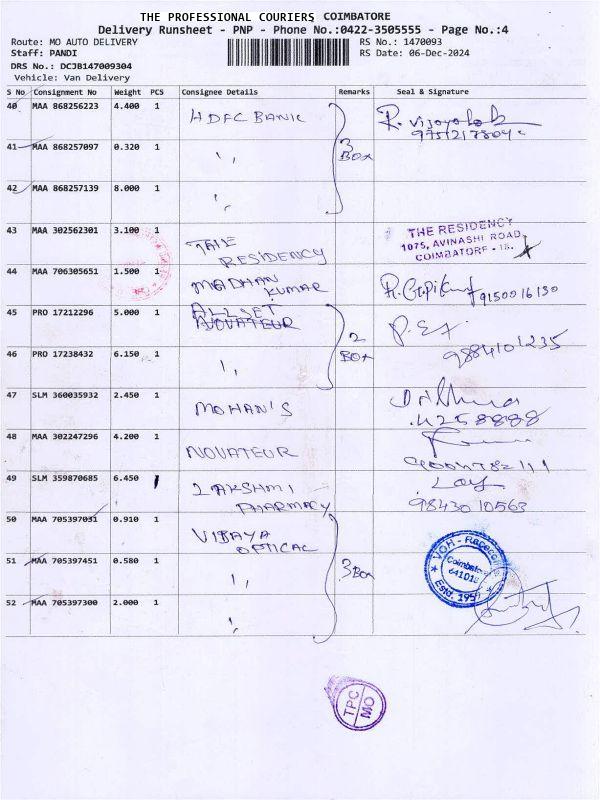 THE PROFESSIONAL COURIERS COIMBATORE
Delivery Runsheet - PNP - Phone No.:0422-3505555 - Page No.:4
Route: MO AUTO DELIVERY RS No.: 1470093
Staff: PANDI RS Date: 06-Dec-2024
DRS No.: DCJB147009304
Vehicle: Van Delivery
S No Consignment No Weight PCS Consignee Details Remarks Seal & Signature
40 MAA 868256223 4.400 1 HDFC BANK R. 
41 MAA 868257097 0.320 1 ,, 3 BOX
42 MAA 868257139 8.000 1 ,,
43 MAA 302562301 3.100 1 THE RESIDENCY THE RESIDENCY
1075, AVINASHI ROAD,
COIMBATORE - 18.
44 MAA 706305651 1.500 1 MADHAN KUMAR 9150016130
45 PRO 17212296 5.000 1 ALLSET NOVATEUR 2 BOX
46 PRO 17238432 6.150 1 ,, 9884101235
47 SLM 360035932 2.450 1 MOHAN'S
48 MAA 302247296 4.200 1 NOVATEUR
49 SLM 359870685 6.450 1 LAKSHMI PHARMACY 98430 10563
50 MAA 705397031 0.910 1 VIJAYA OPTICAL
51 MAA 705397451 0.580 1 ,, 3 Box
52 MAA 705397300 2.000 1 ,,
VOH - Racecourse
Coimbatore
641018
Estd. 1959
TPC
MO